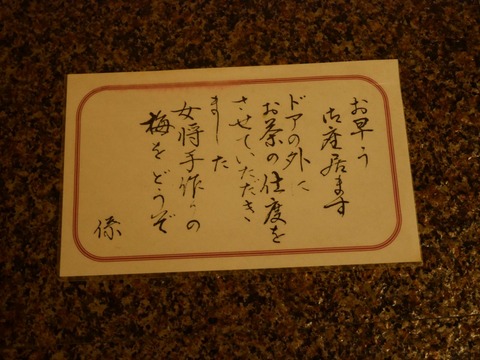 お早う
御座居ます
ドアの外に
お茶の仕度を
させていただき
ました
女将手作りの
梅をどうぞ
係